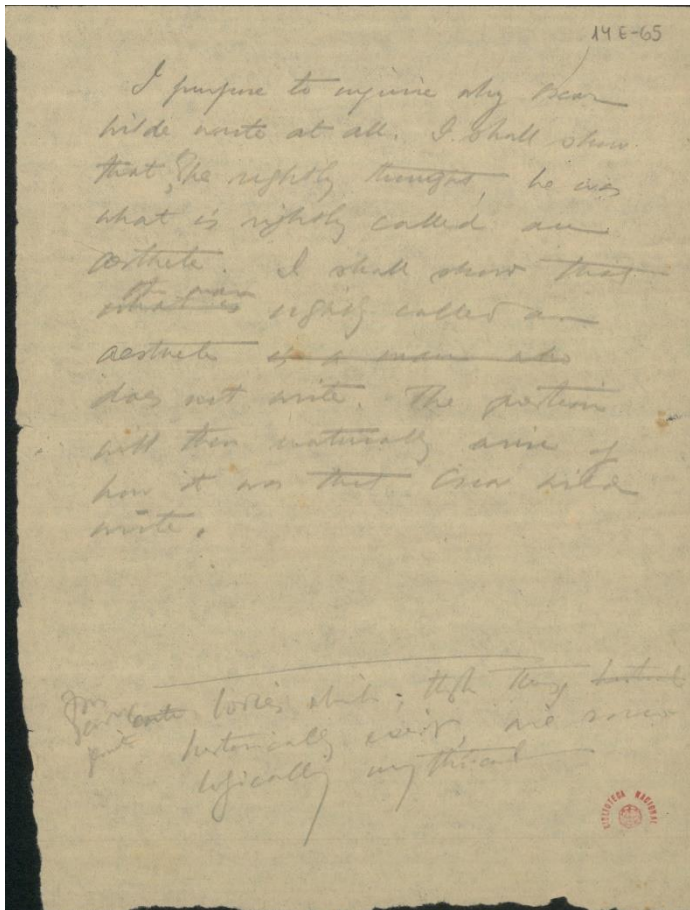 14E-65
I purpose to inquire why Oscar
Wilde wrote at all. I shall show
that, he rightly thought, he was
what is rightly called an
aesthete. I shall show that
what is the man rightly called an
aesthete is a man who
does not write. The question
will then naturally arise of
how it was that Oscar Wilde
wrote.
bodies which, though they
historically exist, are socio-
logically mythical
BIBLIOTECA NACIONAL